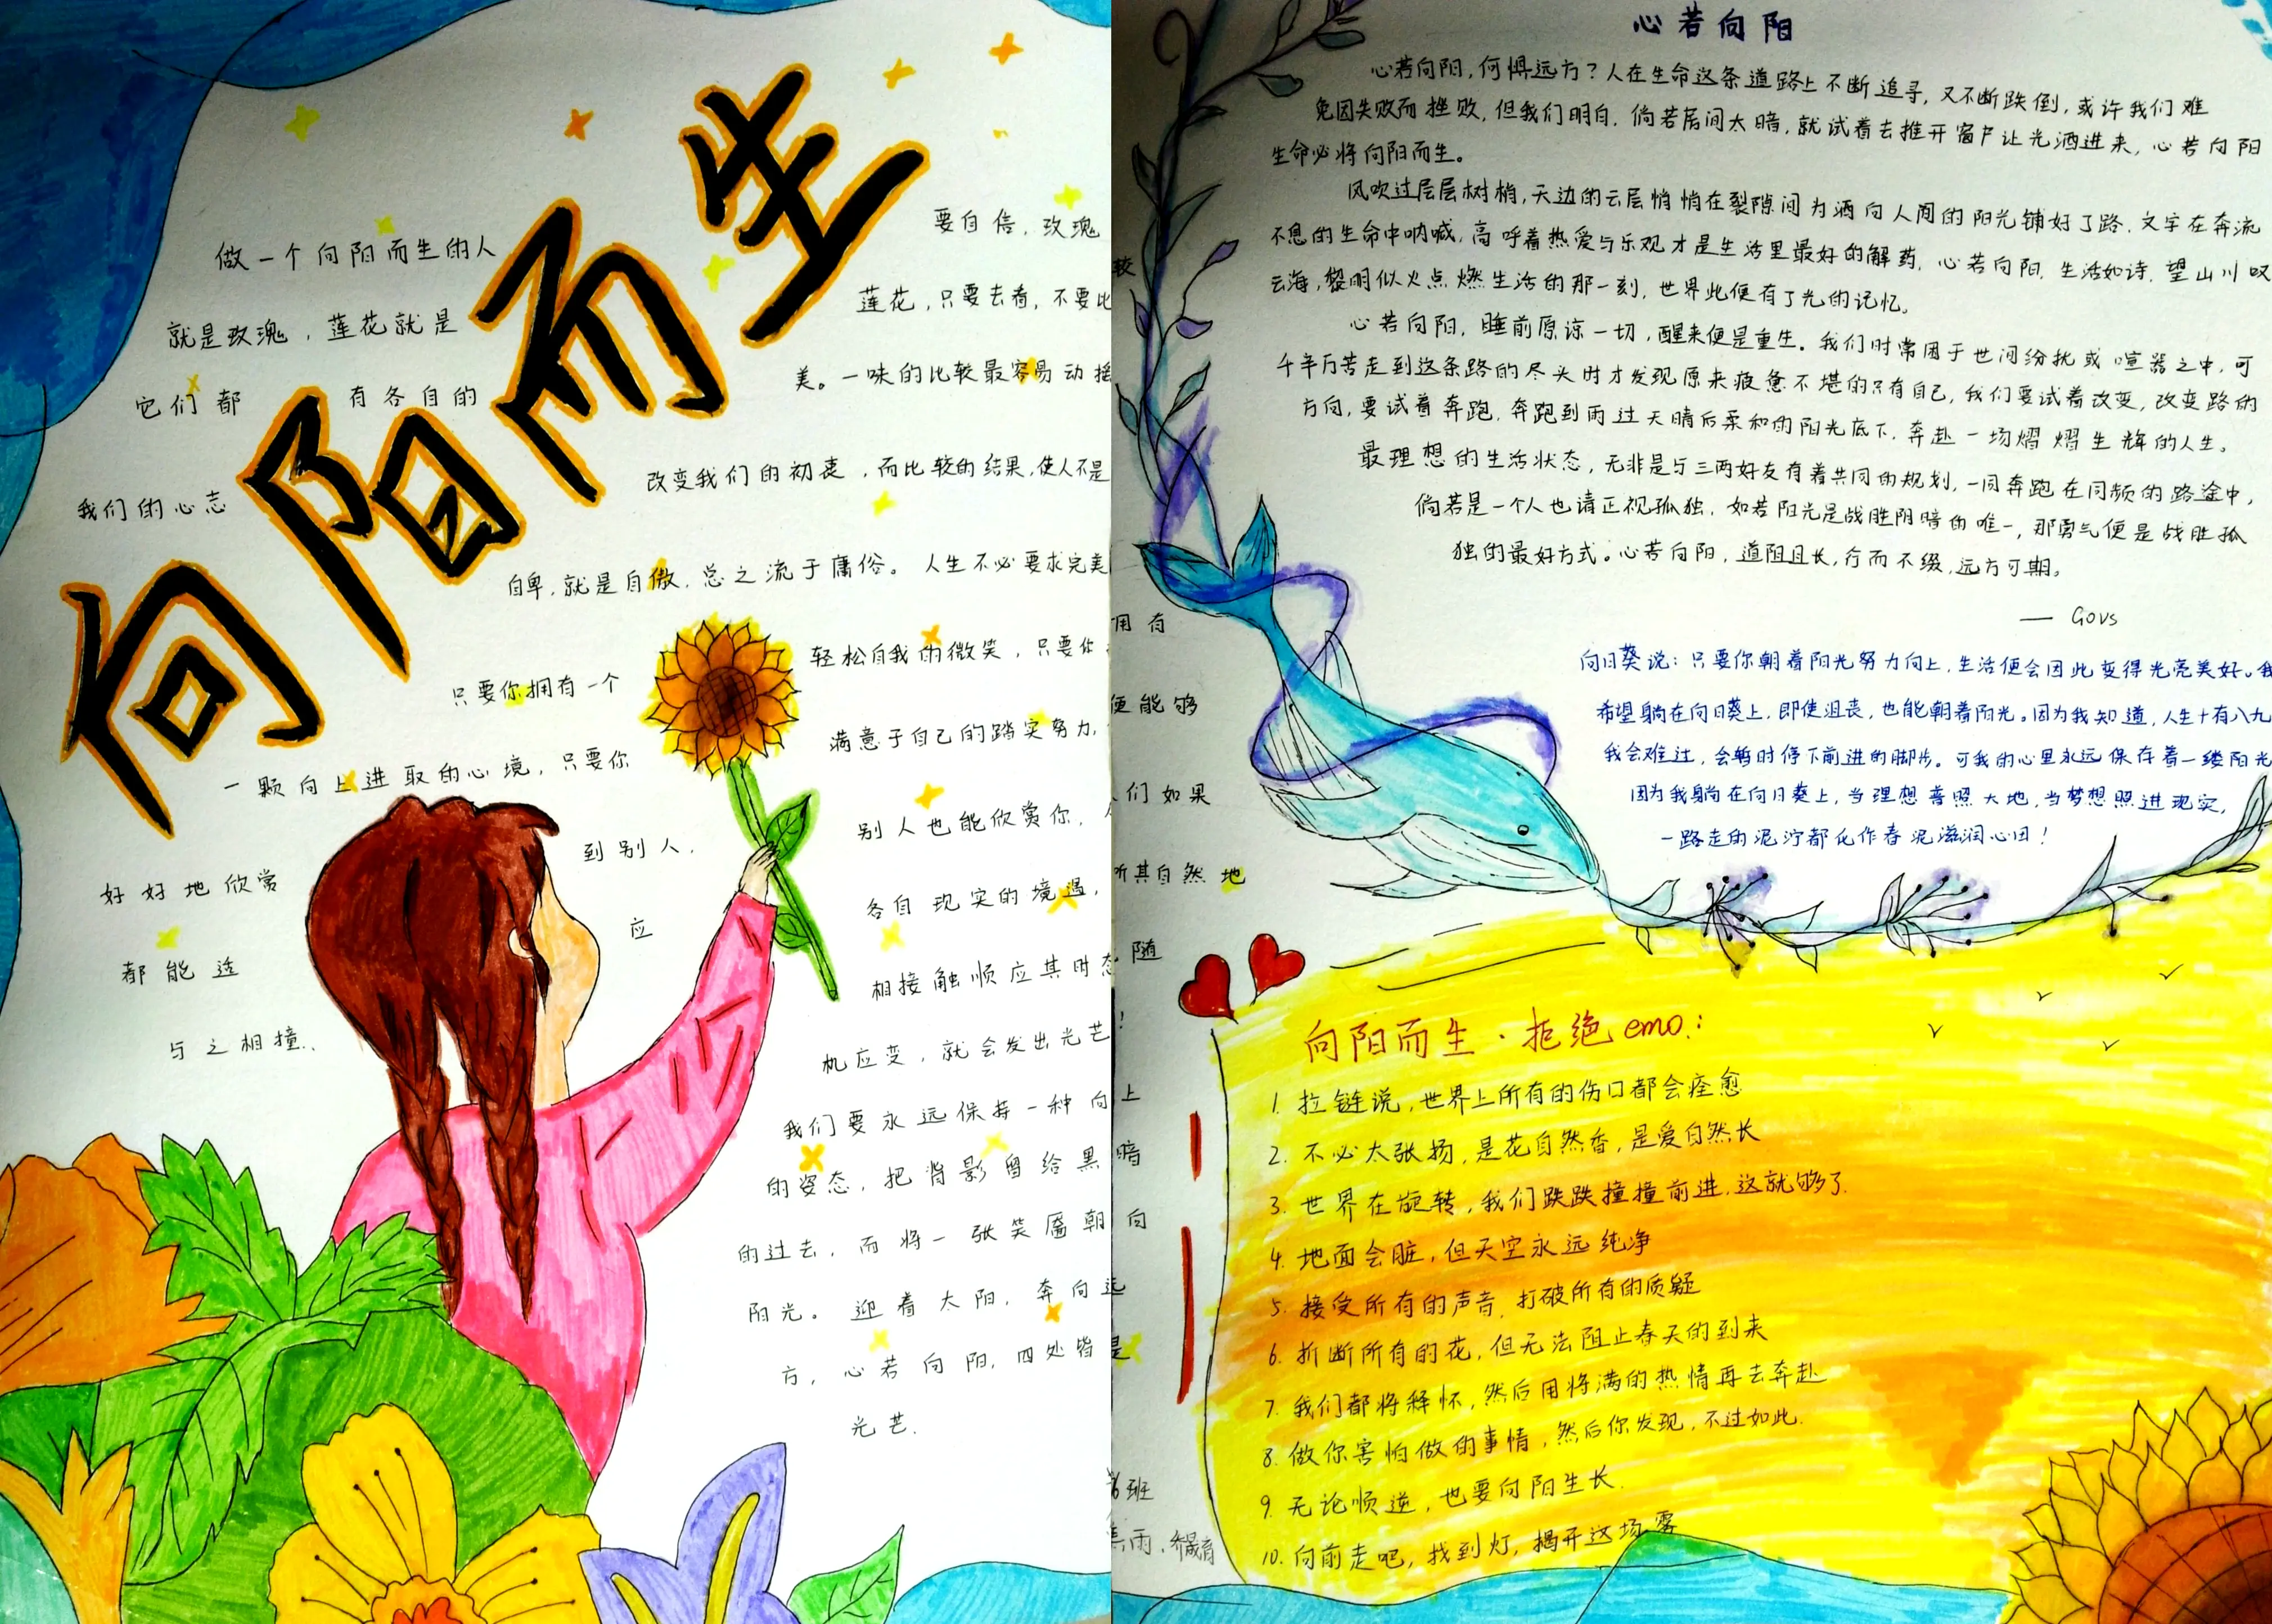 向阳而生
做一个向阳而生的人
要自信，玫瑰
就是玫瑰，莲花就是
莲花，只要去看，不要比较
它们都 有各自的
美。一味的比较最容易动摇
我们的心志
改变我们的初衷，而比较的结果，使人不是
自卑，就是自傲，总之流于庸俗。人生不必要求完美
只要你拥有一个
轻松自我的微笑，只要你 拥有
一颗向上进取的心境，只要你
满意于自己的踏实努力， 便能够
好好地欣赏
到别人，
别人也能欣赏你， 人们如果
都能适
应
各自现实的境遇， 所其自然地
与之相撞，
相接触顺应其时态 随
机应变，就会发出光芒！
我们要永远保持一种向上
的姿态，把背影留给黑暗
的过去，而将一张笑靥朝向
阳光。迎着太阳，奔向远
方，心若向阳，四处皆是
光芒。
班
雨，
心若向阳
心若向阳，何惧远方？人在生命这条道路上不断追寻，又不断跌倒，或许我们难
免因失败而挫败，但我们明白，倘若房间太暗，就试着去推开窗户让光洒进来，心若向阳
生命必将向阳而生。
风吹过层层树梢，天边的云层悄悄在裂隙间为洒向人间的阳光铺好了路，文字在奔流
不息的生命中呐喊，高呼着热爱与乐观才是生活里最好的解药，心若向阳，生活如诗，望山川叹
云海，黎明似火点燃生活的那一刻，世界此便有了光的记忆。
心若向阳，睡前原谅一切，醒来便是重生。我们时常困于世间纷扰或喧嚣之中，可
千辛万苦走到这条路的尽头时才发现原来疲惫不堪的只有自己，我们要试着改变，改变路的
方向，要试着奔跑，奔跑到雨过天晴后柔和的阳光底下，奔赴一场熠熠生辉的人生。
最理想的生活状态，无非是与三两好友有着共同的规划，一同奔跑在同频的路途中，
倘若是一个人也请正视孤独，如若阳光是战胜阴暗的唯一，那勇气便是战胜孤
独的最好方式。心若向阳，道阻且长，行而不缀，远方可期。
—— Govs
向日葵说：只要你朝着阳光努力向上，生活便会因此变得光亮美好。我
希望躺在向日葵上，即使沮丧，也能朝着阳光。因为我知道，人生十有八九
我会难过，会暂时停下前进的脚步。可我的心里永远保存着一缕阳光
因为我躺在向日葵上，当理想普照大地，当梦想照进现实，
一路走的泥泞都化作春泥滋润心田！
向阳而生·拒绝emo：
1. 拉链说，世界上所有的伤口都会痊愈
2. 不必太张扬，是花自然香，是爱自然长
3. 世界在旋转，我们跌跌撞撞前进，这就够了．
4. 地面会脏，但天空永远纯净
5. 接受所有的声音，打破所有的质疑
6. 折断所有的花，但无法阻止春天的到来
7. 我们都将释怀，然后用将满的热情再去奔赴
8. 做你害怕做的事情，然后你发现，不过如此．
9. 无论顺逆，也要向阳生长．
10. 向前走吧，找到灯，揭开这场雾